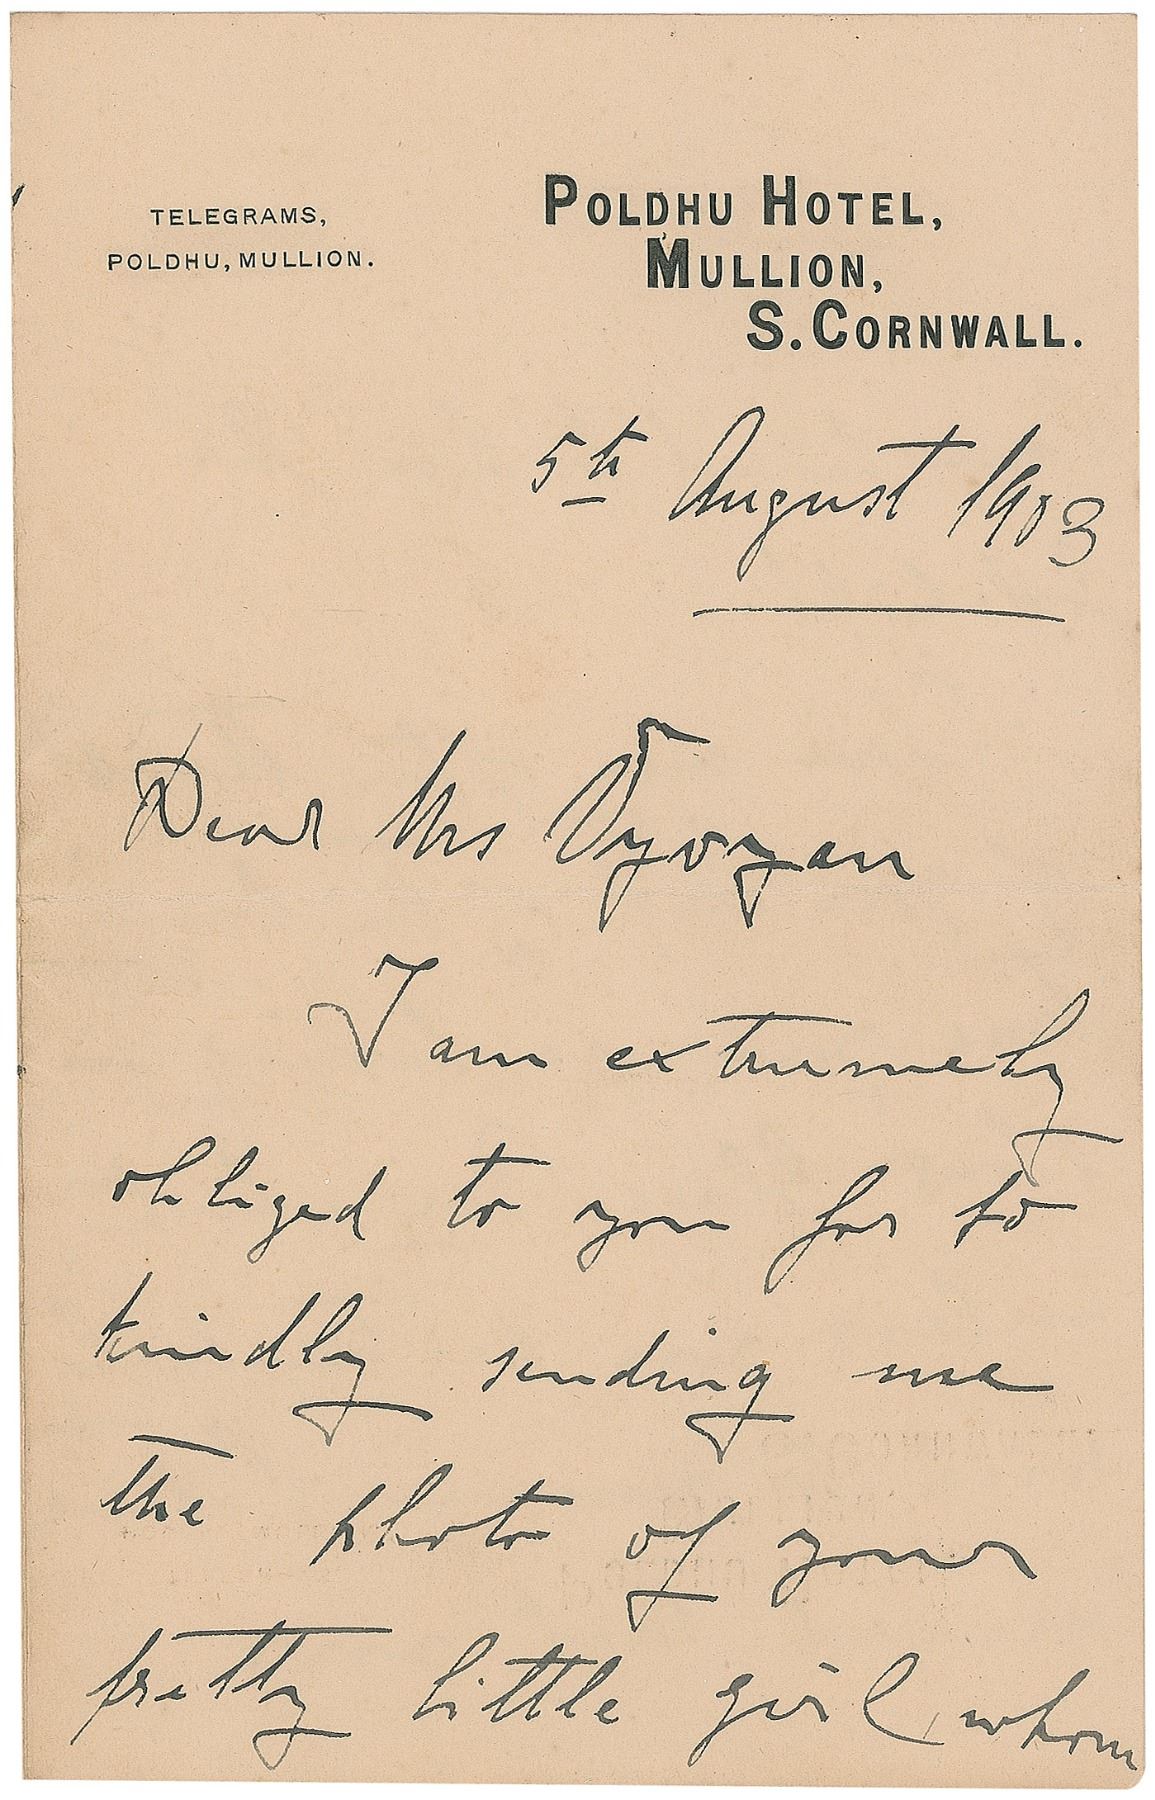 TELEGRAMS,
POLDHU, MULLION.
POLDHU HOTEL,
MULLION,
S. CORNWALL.
5th August 1903
Dear Mrs Vyvyan
I am extremely
obliged to you for so
kindly sending me
the photo of your
pretty little girl whom